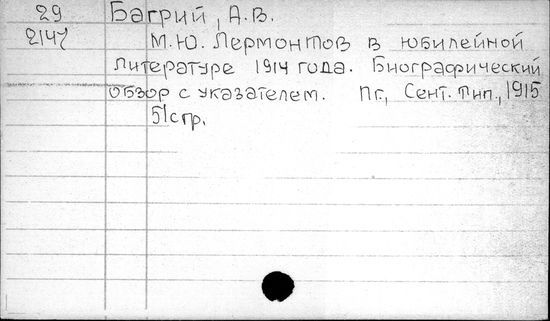 29 Багрий, А.В.
2147 М.Ю. Лермонтов в юбилейной
литературе 1914 года. Биографический
обзор с указателем. Пг., Сент. тип., 1915
51стр.